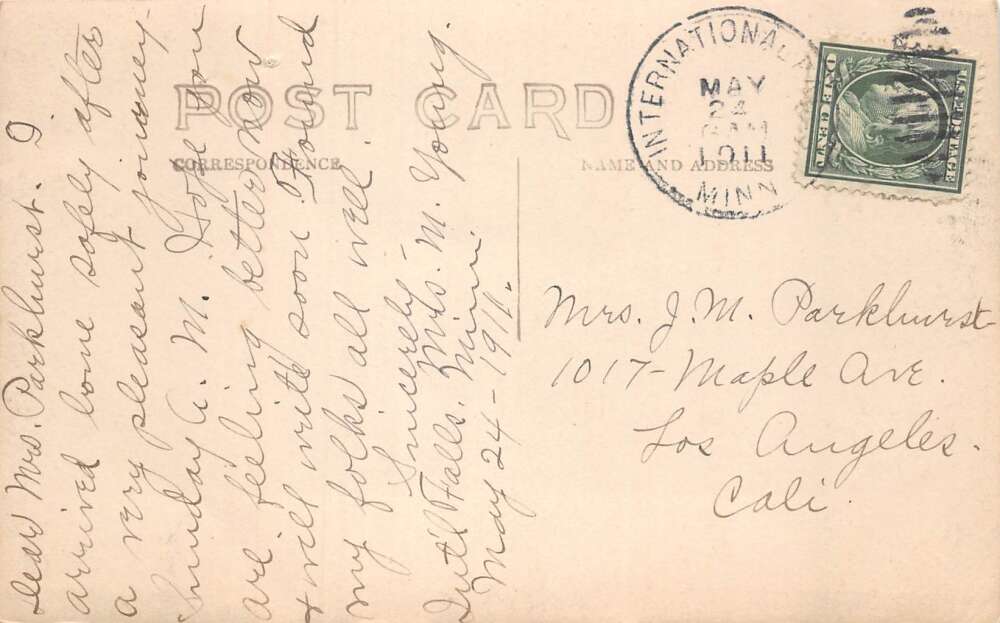 POST CARD
CORRESPONDENCE
NAME AND ADDRESS
INTERNATIONAL
MAY
24
6 AM
1911
MINN
U.S. POSTAGE
ONE CENT
Dear Mrs. Parkhurst. I
arrived home safely after
a very pleasant journey
Sunday A. M. Hope you
are feeling better now
+ will write soon. Found
my folks all well.
Sincerely
Mrs. M. Young.
Int'l Falls. Minn.
May 24-1911.
Mrs. J. M. Parkhurst
1017-Maple Ave.
Los Angeles.
Cali.